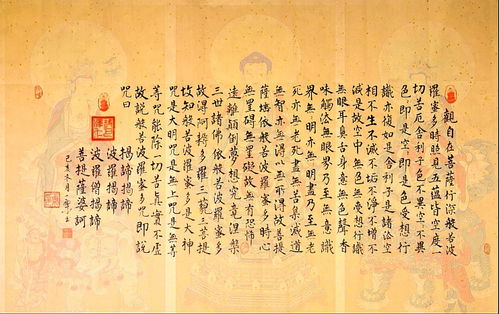 觀自在菩薩行深般若波
羅蜜多時照見五蘊皆空度一
切苦厄舍利子色不異空空不異
色色即是空空即是色受想行
識亦復如是舍利子是諸法空
相不生不滅不垢不淨不增不
減是故空中無色無受想行識
無眼耳鼻舌身意無色聲香
味觸法無眼界乃至無意識
界無無明亦無無明盡乃至無老
死亦無老死盡無苦集滅道
無智亦無得以無所得故菩提
薩埵依般若波羅蜜多故心
無罣礙無罣礙故無有恐怖
遠離顛倒夢想究竟涅槃
三世諸佛依般若波羅蜜多
故得阿耨多羅三藐三菩提
故知般若波羅蜜多是大神
咒是大明咒是無上咒是無等
等咒能除一切苦真實不虛
故說般若波羅蜜多咒即說
咒曰
揭諦揭諦
波羅揭諦
波羅僧揭諦
菩提薩婆訶